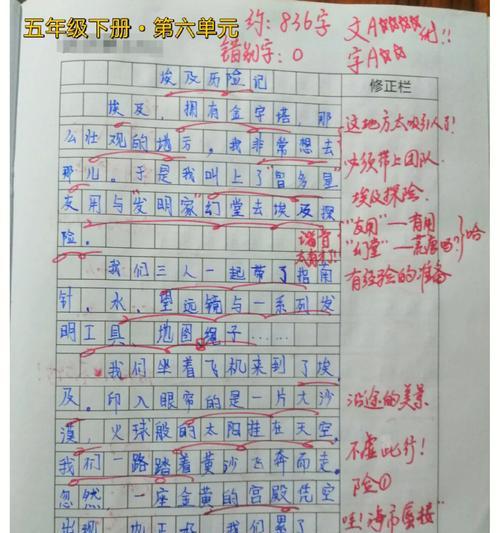 五年级下册·第六单元
约:836字
文A☆☆☆☆优!!
错别字:0
字A☆☆
修正栏
埃及历险记
埃及,拥有金字塔,那
么壮观的地方,我非常想去
那儿。于是我叫上了“冒多星”
友用与“发明家”幻堂去埃及探
险。
我们三人一起带了指南
针,水,望远镜与一系列发
明工具,地图绳子……
我们坐着飞机来到了埃
及。印入眼帘的是一片大沙
漠,火球般的太阳挂在天空。
我们一路踏着黄沙飞奔而走。
忽然,一座金黄的宫殿凭空
出现
我们累了
这地方太吸引人了!
必须带上团队
埃及探险。
“友用”—有用
谐音
有经验的准备
沿途的美景
不虚此行!
险①
哇!海市蜃楼”